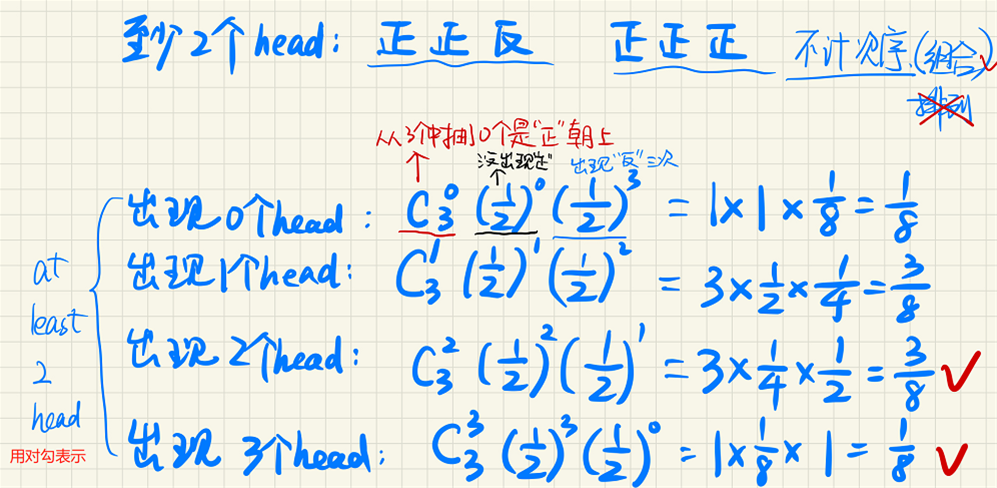 至少2个head: 正正反 正正正 不计次序(组合)✓
排列
从3个中抽0个是"正"朝上
没出现"正" 出现"反"三次
出现0个head: C₃⁰ (1/2)⁰ (1/2)³ = 1×1×1/8 = 1/8
出现1个head: C₃¹ (1/2)¹ (1/2)² = 3×1/2×1/4 = 3/8
出现2个head: C₃² (1/2)² (1/2)¹ = 3×1/4×1/2 = 3/8 ✓
出现3个head: C₃³ (1/2)³ (1/2)⁰ = 1×1/8×1 = 1/8 ✓
at
least
2
head
用对勾表示